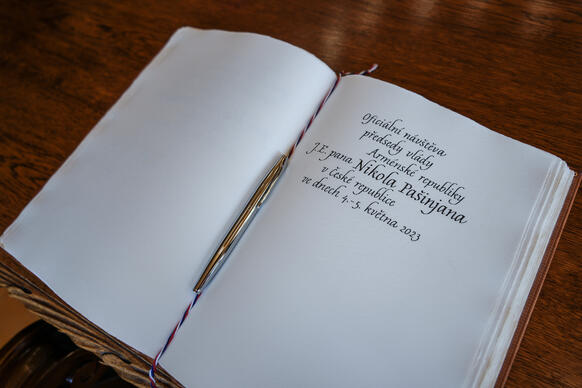 Oficiální návštěva
předsedy vlády
Arménské republiky
J.E. pana Nikola Pašinjana
v České republice
ve dnech 4.-5. května 2023